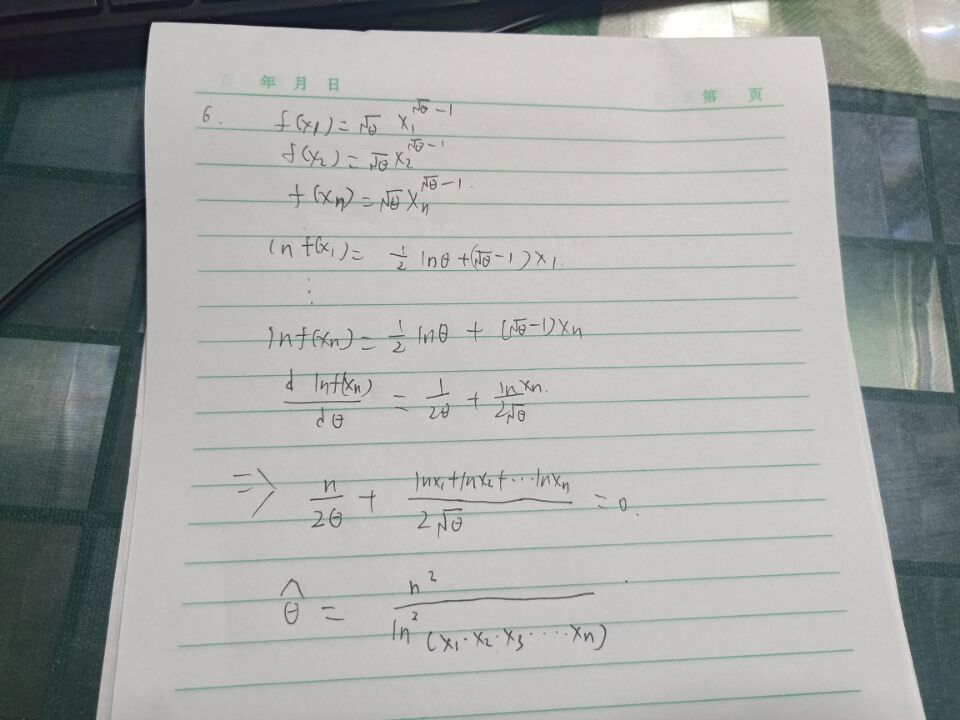 年 月 日
第 页
6. f(x₁) = √θ x₁^(√θ-1)
f(x₂) = √θ x₂^(√θ-1)
f(xₙ) = √θ xₙ^(√θ-1).
ln f(x₁) = 1/2 lnθ + (√θ-1)x₁.
⋮
ln f(xₙ) = 1/2 lnθ + (√θ-1)xₙ
d ln f(xₙ)/dθ = 1/(2θ) + ln xₙ/(2√θ)
⇒ n/(2θ) + (lnx₁+lnx₂+⋯lnxₙ)/(2√θ) = 0.
θ̂ = n²/ln²(x₁·x₂·x₃·⋯·xₙ)